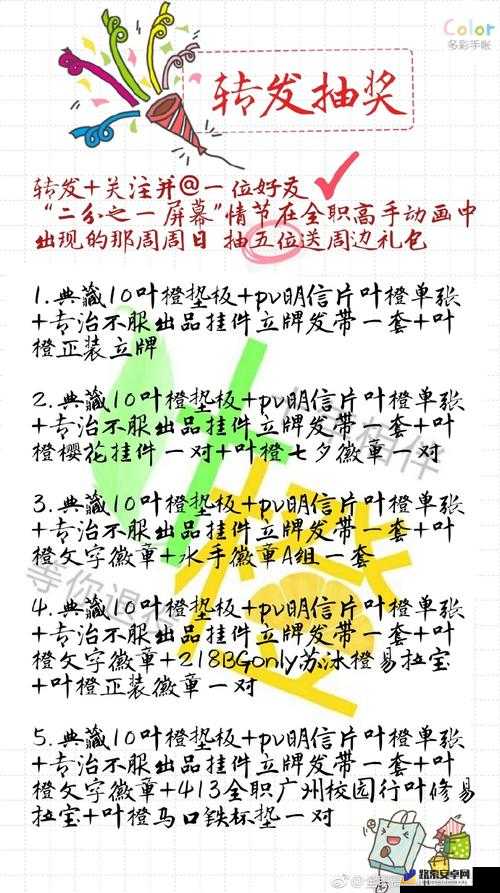 Color
多彩手账
转发抽奖
转发+关注并@一位好友
“二分之一屏幕”情节在全职高手动画中
出现的那周周日 抽五位送周边礼包
1.典藏10叶橙垫板+pv明信片叶橙单张
+专治不服出品挂件立牌发带一套+叶
橙正装立牌
2.典藏10叶橙垫板+pv明信片叶橙单张
+专治不服出品挂件立牌发带一套+叶
橙樱花挂件一对+叶橙七夕徽章一对
3.典藏10叶橙垫板+pv明信片叶橙单张
+专治不服出品挂件立牌发带一套+叶
橙文字徽章+水手徽章A组一套
4.典藏10叶橙垫板+pv明信片叶橙单张
+专治不服出品挂件立牌发带一套+叶
橙文字徽章+218BGonly苏沐橙易拉宝
+叶橙正装徽章一对
5.典藏10叶橙垫板+pv明信片叶橙单张
+专治不服出品挂件立牌发带一套+叶
橙文字徽章+413全职广州校园行叶修易
拉宝+叶橙马口铁杯垫一对
叶橙
相伴
等你退役